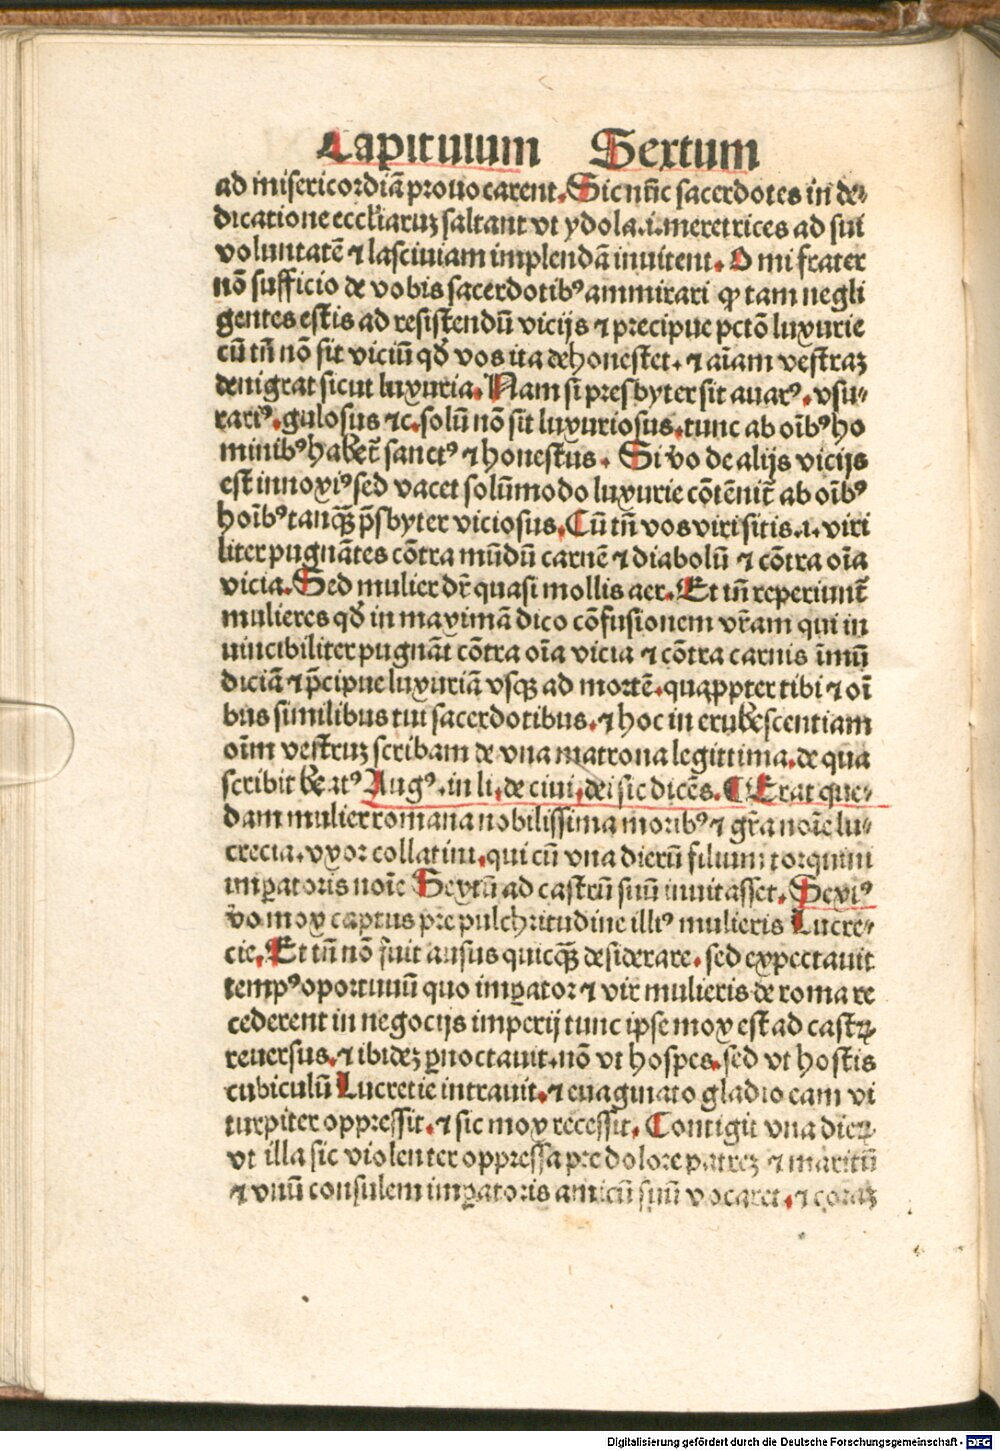 Capitulum Sextum
ad misericordiã prouocarent. Sic nũc sacerdotes in de⸗
dicatione eccl'iaruȝ saltant vt ydola .i. meretrices ad sui
voluntatẽ ⁊ lasciuiam implendã inuitent. O mi frater
nõ sufficio de vobis sacerdotibꝰ ammirari ꝙ tam negli
gentes estis ad resistendũ vicijs ⁊ precipue pctõ luxurie
cũ tñ nõ sit viciũ qđ vos ita dehonestet. ⁊ aĩam vestraȝ
denigrat sicut luxuria. Nam si presbyter sit auarꝰ. vsu⸗
rariꝰ. gulosus ⁊c. solũ nõ sit luxuriosus. tunc ab oĩbꝰ ho
minibꝰ habet̃ sanctꝰ ⁊ honestus. Si v̾o de alijs vicijs
est innoxiꝰ sed vacet solũmodo luxurie cõtẽnit̃ ab oĩbꝰ
hoĩbꝰ tanqꝫ p̃sbyter viciosus. Cũ tñ vos viri sitis .i. viri
liter pugnãtes cõtra mũdũ carnẽ ⁊ diabolũ ⁊ cõtra oĩa
vicia. Sed mulier dr̃ quasi mollis aer. Et tñ reperiunt̃
mulieres qđ in maximã dico cõfusionem vr̃am qui in
uincibiliter pugnãt cõtra oĩa vicia ⁊ cõtra carnis ĩmũ
diciã ⁊ p̃cipue luxuriã vsqꝫ ad mortẽ. quapp̱ter tibi ⁊ oĩ
bus similibus tui sacerdotibus. ⁊ hoc in erubescentiam
oĩm vestruȝ scribam de vna matrona legittima. de qua
scribit beatꝰ Augꝰ. in li. de ciui. dei sic dicẽs. ¶ Erat que⸗
dam mulier romana nobilissima moribꝰ ⁊ gr̃a noĩe lu⸗
crecia. vxor collatini. qui cũ vna dierũ filium torquini
imꝑatoris noĩe Sextũ ad castrũ suũ inuitasset. Sextꝰ
v̾o mox captus pre pulchritudine illiꝰ mulieris Lucre⸗
cie. Et tñ nõ fuit ausus quicqꝫ desiderare. sed expectauit
tempꝰ oportunũ quo imꝑator ⁊ vir mulieris de roma re
cederent in negocijs imperij tunc ipse mox est ad castꝝ
reuersus. ⁊ ibideȝ ꝑnoctauit. nõ vt hospes. sed vt hostis
cubiculũ Lucretie intrauit. ⁊ euaginato gladio eam vi
turpiter oppressit. ⁊ sic mox recessit. Contigit vna dieꝝ
vt illa sic violenter oppressa pre dolore patreȝ ⁊ maritũ
⁊ vnũ consulem imꝑatoris amicũ suũ vocaret. ⁊ coraȝ
Digitalisierung gefördert durch die Deutsche Forschungsgemeinschaft - DFG